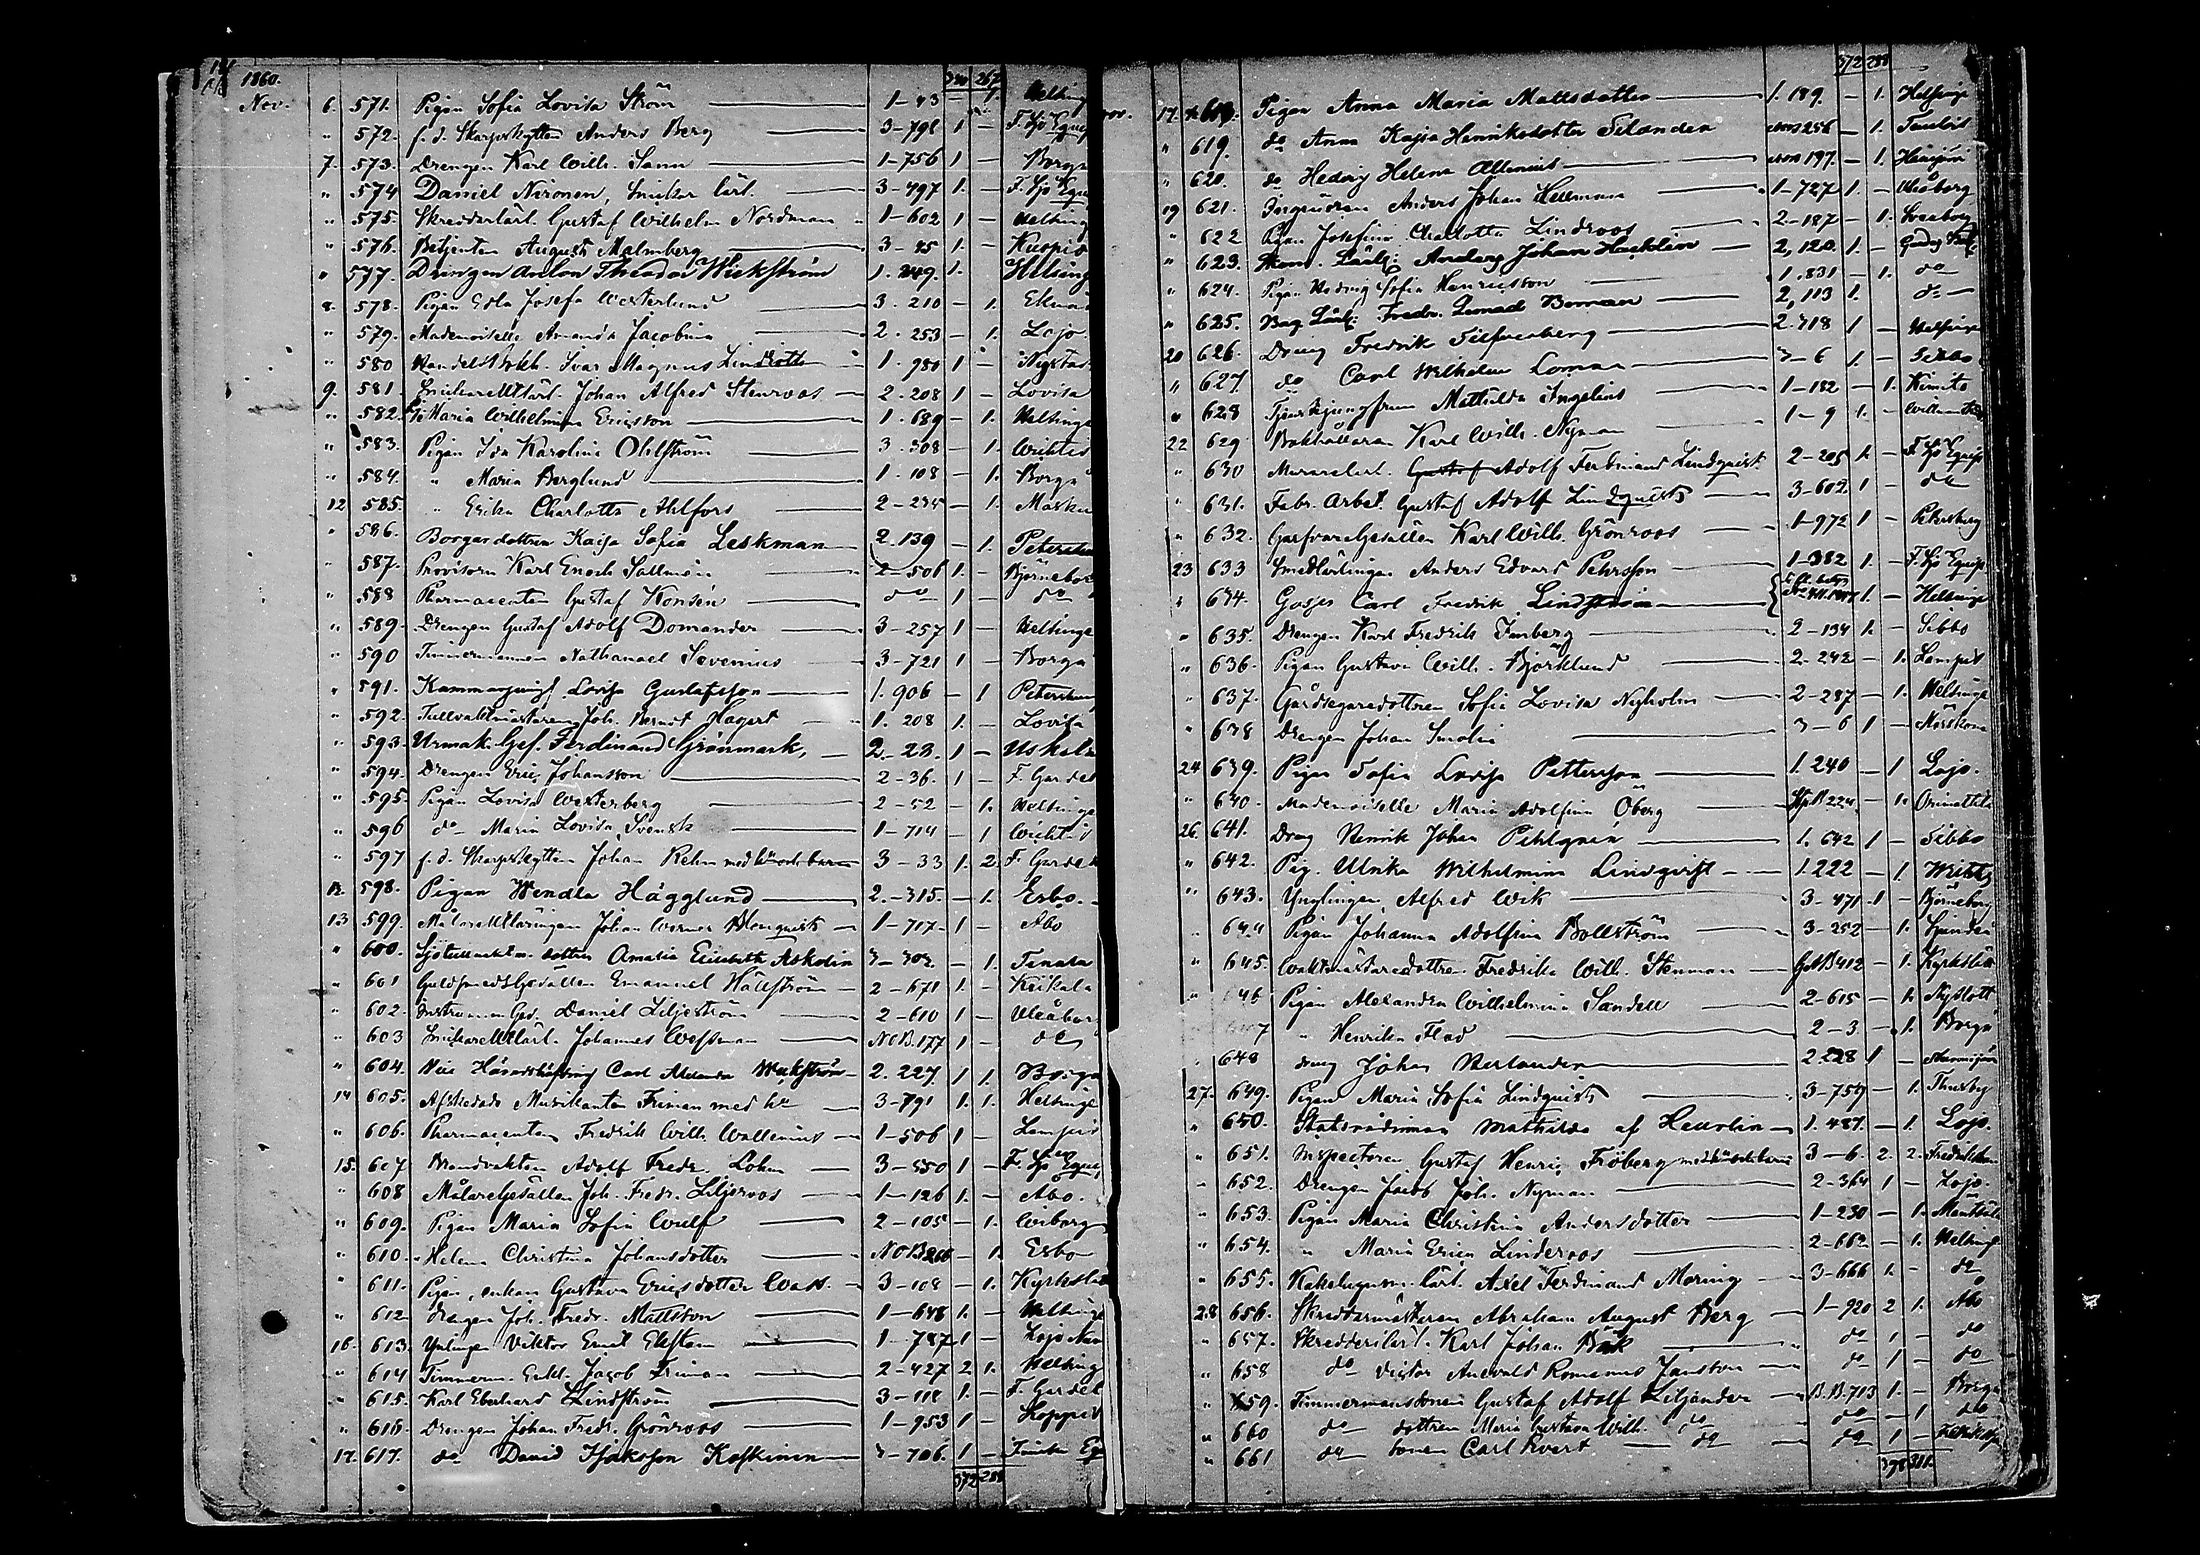 1860. 267
Nov. 6. 571. Pigan Sofia Lovisa Ström 1-43 - 1. Helsing
" 572. f. d. Skarpskytten Anders Berg 3-798 1 - F. Sjö Equip
7. 573. Drengen Karl Wilh. Sann 1-756 1 - Borgå
" 574 Daniel Nironen, Snickar lärl. 3-497 1. - F. Sjö Equip
" 575. Skredderlärl. Gustaf Wilhelm Nordman 1-602 1 - Helsing
" 576. Betjenten August Malmberg 3-45 1. - Kuopio
" 577. Drengen Anton Theodor Wickström 1. 249. 1. Helsing
8. 578. Pigan Edla Josefa Westerlund 3. 210 - 1. Ekenäs
" 579. Mademoiselle Amanda Jacobina 2. 253 - 1. Lojo.
" 580 Handelsbokh. Ivar Magnus Lindroth 1. 980 1 - Nystad
9. 581 Snickarelärl. Johan Alfred Stenroos 2. 208 1 - Lovisa
" 582. Maria Wilhelmina Ericsson 1. 689 - 1. Helsinge
" 583. Pigan Ida Karolina Ohlström 3. 508 - 1. Wichtis
" 584. " Maria Berglund 1. 108 - 1. Borgå
12 585. " Erika Charlotta Ahlfors 2-235 - 1. Masku
" 586. Borgardottren Kajsa Sofia Leskman 2. 139 - 1. Petersbu
" 587. Provisorn Karl Enoch Sallmén 2-506 1. - Björnebor
" 588 Pharmaceuten Gustaf Konsén do 1 - do
" 589. Drengen Gustaf Adolf Domander 3-257 1 - Helsinge
" 590 Timmermannen Nathanael Savenius 3-721 1 - Borgå
" 591. Kammarjungf. Lovisa Gustafsson 1. 906 - 1 Petersbu
" 592. Tullvaktmästaren Joh. Berndt Hagert 1. 208 1. - Lovisa
" 593. Urmak. Ges. Ferdinand Grönmark, 2-22. 1 - Uskela
" 594. Drengen Eric Johansson 2-36. 1 - F. Gardet
" 595. Pigan Lovisa Westerberg 2-52 - 1. Helsinge
" 596 do Maria Lovisa Svensk 1-714 - 1 Wichtis
" 597 f. d. Skarpskytten Johan Rehn med hu och barn 3-33 1. 2. F. Gardet
12. 598. Pigan Wendla Hägglund 2.-315. - 1. Esbo.
13 599. Målarelärlingen Johan Werner Blomqvist 1-717 1 - Åbo
" 600. Sjötullvaktm. dottren Amalia Elisabeth Askolin 3-302. - 1. Tenala
" 601 Guldsmedsgesällen Emanuel Hällström 2-671 1. - Keikala
" 602. Instrum. Ges. Daniel Liljeström 2-610 1 - Uleåborg
" 603 Snickarelärl. Johannes Wessman NOB. 177 1 - do
" 604. Vice Häradshöfding Carl Alexander Weckström 2. 227. 1 1. Borgå
14 605. Afskedade Musikanten Friman med hu 3-791 1. 1. Helsinge
" 606. Pharmaceuten Fredrik Wilh. Wallenius 1-506 1 - Lampis
15. 607 Brandvakten Adolf Fredr. Lohm 3-550 1 - F. Sjö Equip
" 608 Målaregesällen Joh. Fredr. Liljeroos 1-126 1. - Åbo.
" 609. Pigan Maria Sofia Wulf 2-105 - 1. Wiborg
" 610. " Helena Christina Johansdotter NOB 266 - 1. Esbo
" 611. Pigan, enkan Gustava Ericsdotter Wass. 3-108 - 1. Kyrkslä
" 612 Drengen Joh. Fredr. Mattsson 1-648 1. - Helsinge
16. 613. Ynlingen Viktor Emil Ekstam 1-787 1 - Lojo
" 614 Timmerm. Enkl. Jacob Friman 2-427 2 1. Helsing
" 615. Karl Eberhard Lindström 3-118 1. - F. Gardet
" 616. Drengen Johan Fredr. Grönroos 1-953 1 - Koppis
17. 617. do David Isaksson Koskinen 3-706. 1 -
372 288
372 288
Nov. 17. 618. Pigan Anna Maria Mattsdotter 1. 189. - 1. Helsinge
" 619. do Anna Kajsa Henriksdotter Silander 256 - 1.
" 620. do Hedvig Helena Allenius 197. - 1.
19 621. Ingeniören Anders Johan Hellman 1-727 1. - Uleåborg
" 622 Pigan Josefina Charlotta Lindroos 2-187 - 1. Sveaborg
" 623. Skom. Lärl: Anders Johan Hacklin 2, 120. 1. -
" 624. Pigan Hedvig Sofia Henricsson 1. 831 - 1. do
" 625. Bag. Lärl: Fredr. Leonard Boman 2, 113 1. do
20 626. Dreng Fredrik Silfverberg 2. 718 1 - Helsinge
" 627. do Carl Wilhelm Loman 3-6 1 - Sibbo
" 628 Tjenstejungfrun Mathilda Ingelius 1-182 - 1. Kimito
22 629 Bokhållaren Karl Wilh. Nyman 1-9 1. -
" 630 Murarelärl. Gustaf Adolf Ferdinand Lindqvist 2-205 1. - F. Sjö Equip
" 631. Fabr. Arbet. Gustaf Adolf Lindqvist 3-602. 1 - do
" 632. Garfvaregesällen Karl Wilh. Grönroos 1-972 1 - Petersburg
23 633 Smedlärlingen Anders Edvard Pehrsson 1-382 1. - F. Sjö Equip
" 634. Gosse Carl Fredrik Lindström 1. - Helsinge
" 635. Drengen Karl Fredrik Imberg 2-134 1. - Sibbo
" 636. Pigan Gustava Wilh. Björklund 2-242 - 1. Lampis
" 637. Gårdsegaredottren Sofia Lovisa Nyholm 2-287 - 1. Helsinge
" 638 Drengen Johan Smolin 3-6 1 - Mörskom
24 639. Pigan Sofia Lovisa Pettersson 1. 240 - 1 Lojo.
" 640. Mademoiselle Maria Adolfina Öberg 224 - 1. Orimattila
26. 641. Dreng Henrik Johan Pehlgren 1. 642 1 - Sibbo
" 642. Pig. Ulrika Wilhelmina Lindqvist 1. 222 - 1 Wichtis
" 643. Ynglingen Alfred Wik 3-471 1 - Björneborg
" 644 Pigan Johanna Adolfina Bollström 3-252 - 1. Sjundeå
" 645. Waktmästaredottren Fredrika Wilh. Stenman 412 - 1. Kyrkslätt
" 646 Pigan Alexandra Wilhelmina Sandell 2-615 - 1. Nyslott
647 " Henrika Flod 2-3. - 1. Borgå
" 648 Dreng Johan Verlander 2 228 1 -
27. 649. Pigan Maria Sofia Lindqvist 3-759 - 1. Thusby
" 650. Statsrådinnan Mathilda af Heurlin 1. 487. - 1. Lojo.
" 651. Inspectoren Gustaf Henric Fröberg med hu och barn 3-6. 2. 2. Fredrikham
" 652. Drengen Jacob Joh. Nyman 2-364 1 - Lojo.
" 653. Pigan Maria Christina Andersdotter 1-230 - 1. Mäntsälä
" 654. " Maria Erica Linderoos 2-662 - 1. Helsinge
" 655. Kakelugnsm. lärl. Axel Ferdinand Moring 3-666 1. - do
28 656. Skreddarmästaren Abraham August Berg 1-920 2 1. Åbo
" 657. Skredderilärl. Karl Johan Bäck do 1 - do
" 658 do Victor Anevald Romanus Jansson do 1 - do
" 659. Timmermanssonen Gustaf Adolf Liljander B.B. 713 1. - Borgå
" 660 do dottren Maria Gustava Wilh. do do - 1 do
" 661 do sonen Carl Evert do do 1 -
378 311.